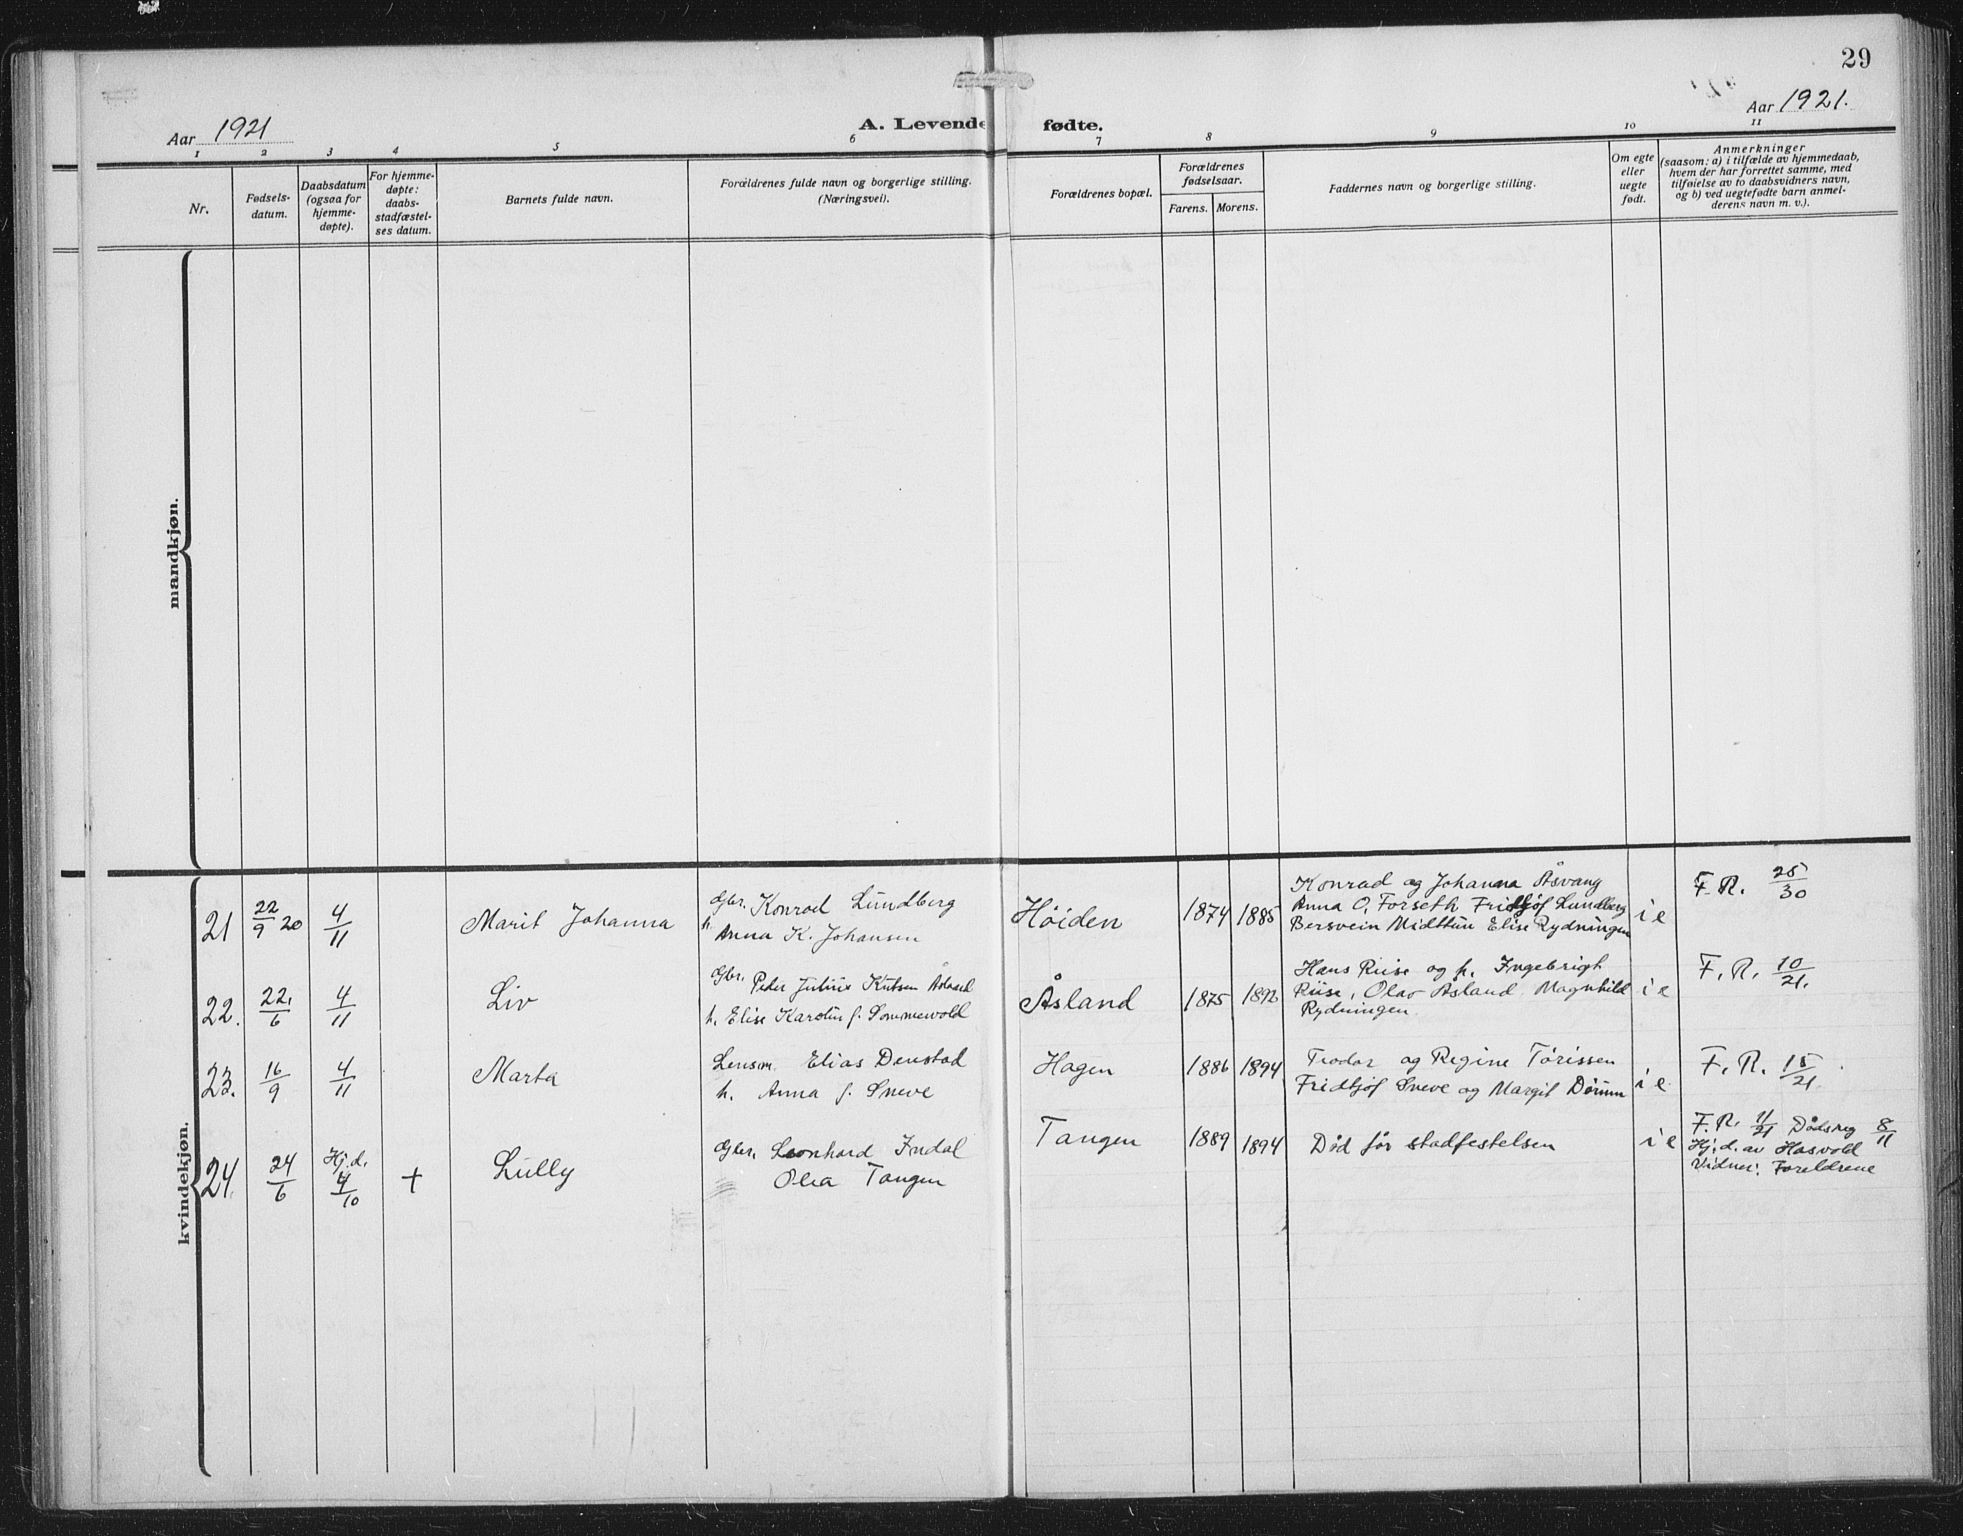 29
Aar 1921
A. Levende fødte.
Aar 1921.
1 2 3 4 5 6 7 8 9 10 11
Nr.
Fødsels-
datum.
Daabsdatum
(ogsaa for
hjemme-
døpte).
For hjemme-
døpte:
daabs-
stadfæstel-
ses datum.
Barnets fulde navn.
Forældrenes fulde navn og borgerlige stilling.
(Næringsvei).
Forældrenes bopæl.
Forældrenes
fødselsaar.
Farens. Morens.
Faddernes navn og borgerlige stilling.
Om egte
eller
uegte
født.
Anmerkninger
(saasom: a) i tilfælde av hjemmedaab,
hvem der har forrettet samme, med
tilføielse av to daabsvidners navn,
og b) ved uegtefødte barn anmel-
derens navn m. v.).
mandkjøn.
kvindekjøn.
21 22/9 20 4/11 Marit Johanna
Gbr. Konrad Lundberg
h. Anna K. Johansen
Höiden 1874 1885
Konrad og Johanna Åsvang
Anna O. Forseth Fridtjof Lundberg
Bersvein Midttun Elise Rydningen
i e
F. R. 25/30
22. 22/6 4/11 Liv
Gbr. Peder Julius Åsland
h. Elise Karolin f. Sommervold
Åsland 1875 1892
Hans Riise og h. Ingebrigt
Riise, Olav Åsland Magnhild
Rydningen.
i e
F. R. 10/21.
23. 16/9 4/11 Marta
Lensm. Elias Denstad
h. Anna f. Sneve
Hagen 1886 1894
Trodar og Regine Törissen
Fridtjof Sneve og Margit Dörum
i e
F. R. 15/21.
24. 24/6 Hj.d. 4/10 + Lully
Gbr. Leonhard Indal
Olea Tangen
Tangen 1889 1894
Död för stadfestelsen
i e
F. R. 11/21 Dödsreg 8/11
Hj. d. av Hasvold
Vidner: Foreldrene